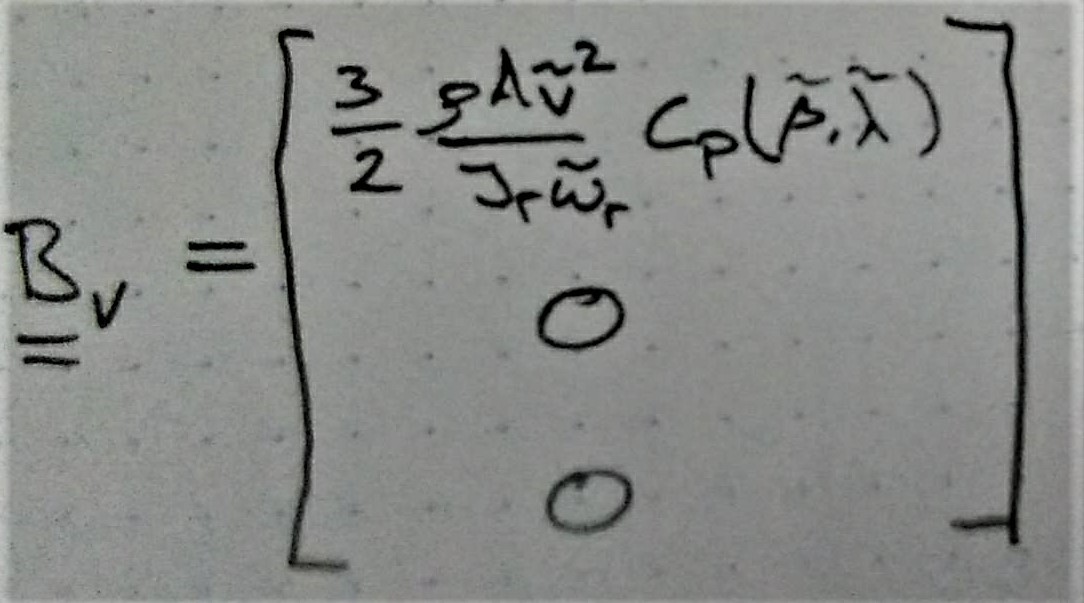 B̳ᵥ = [ 3/2 ρAṽ²/(Jᵣω̃ᵣ) Cₚ(β̃, λ̃)
0
0 ]